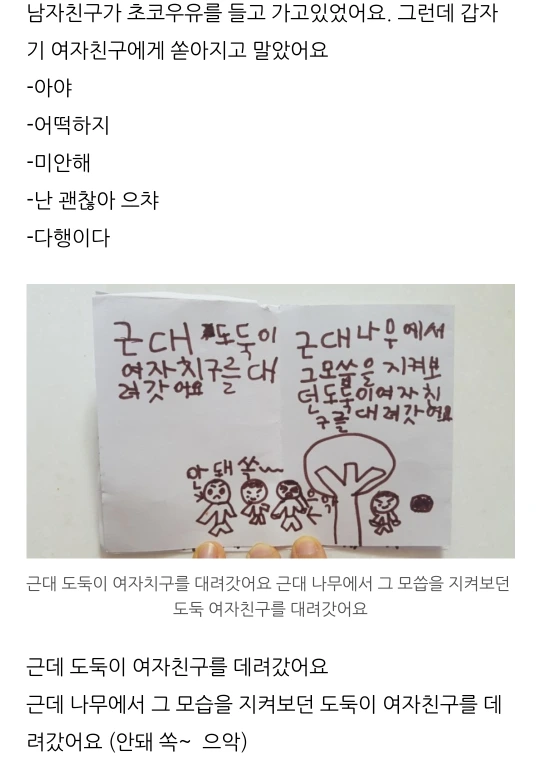 남자친구가 초코우유를 들고 가고있었어요. 그런데 갑자
기 여자친구에게 쏟아지고 말았어요
-아야
-어떡하지
-미안해
-난 괜찮아 으챠
-다행이다
근대 도둑이
여자치구를 대
려갓어요
근대 나무에서
그모씁을 지켜보
던도둑이여자친
구를 대려갓어요
안돼 쏙~
으악
근대 도둑이 여자치구를 대려갓어요 근대 나무에서 그 모씁을 지켜보던
도둑 여자친구를 대려갓어요
근데 도둑이 여자친구를 데려갔어요
근데 나무에서 그 모습을 지켜보던 도둑이 여자친구를 데
려갔어요 (안돼 쏙~ 으악)